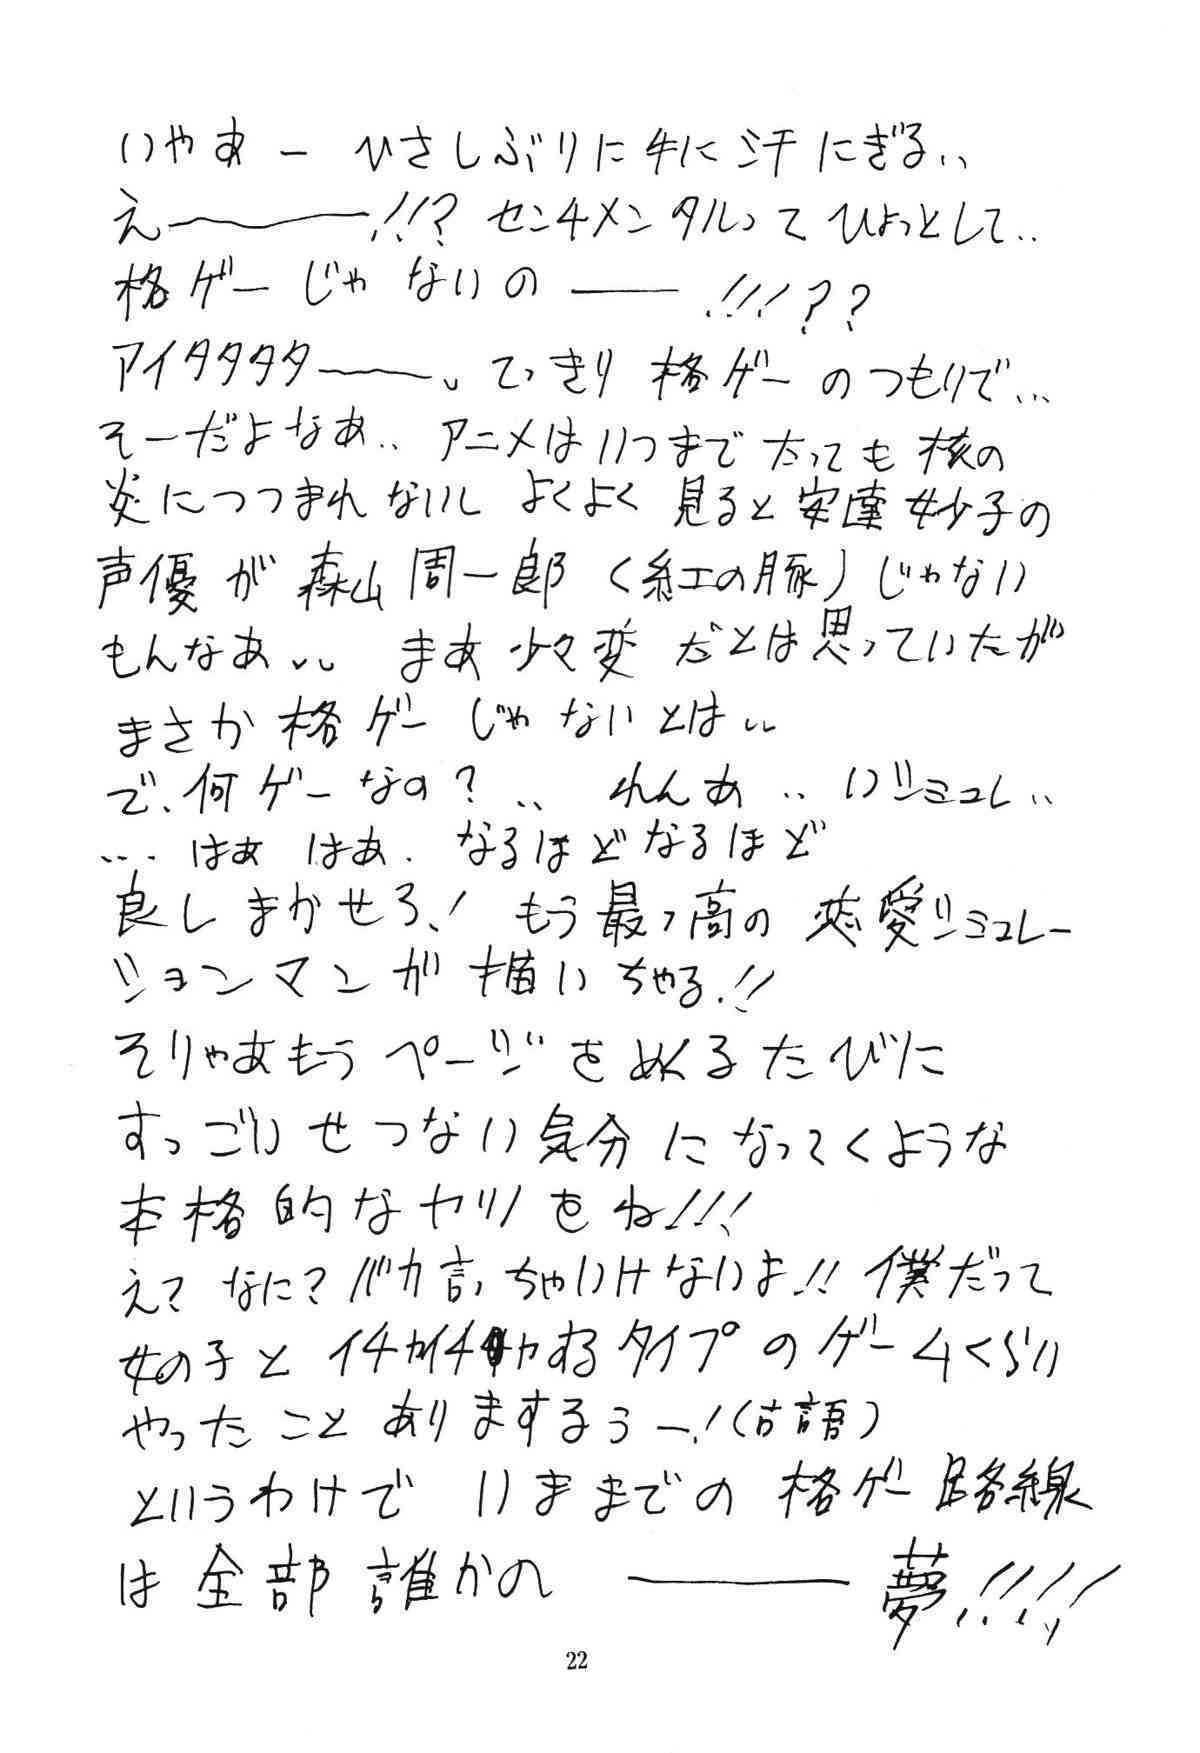 いやあー ひさしぶりに手に汗にぎる..
え〜〜〜!!? センチメンタルって ひょっとして..
格ゲーじゃないの──!!!??
アイタタタタ〜〜。てっきり 格ゲーのつもりで...
そーだよなあ.. アニメはいつまでたっても核の
炎につつまれないし よくよく見ると安達妙子の
声優が森山周一郎(紅の豚)じゃない
もんなあ... まあ少々変だとは思っていたが
まさか格ゲーじゃないとは..
で、何ゲーなの?.. れんあ..いシミュレ..
... はぁ はあ. なるほどなるほど
良しまかせろ! もう最っ高の恋愛シミュレー
ションマンが描いちゃる!!
そりゃあもうページをめくるたびに
すっごいせつない気分になってくような
本格的なヤツをね!!!
え? なに? バカ言っちゃいけないよ!! 僕だって
女の子とイチャイチャするタイプのゲームくらい
やったことありまするぅー!(古語)
というわけで いままでの格ゲー路線
は全部誰かの ───夢!!!!
22